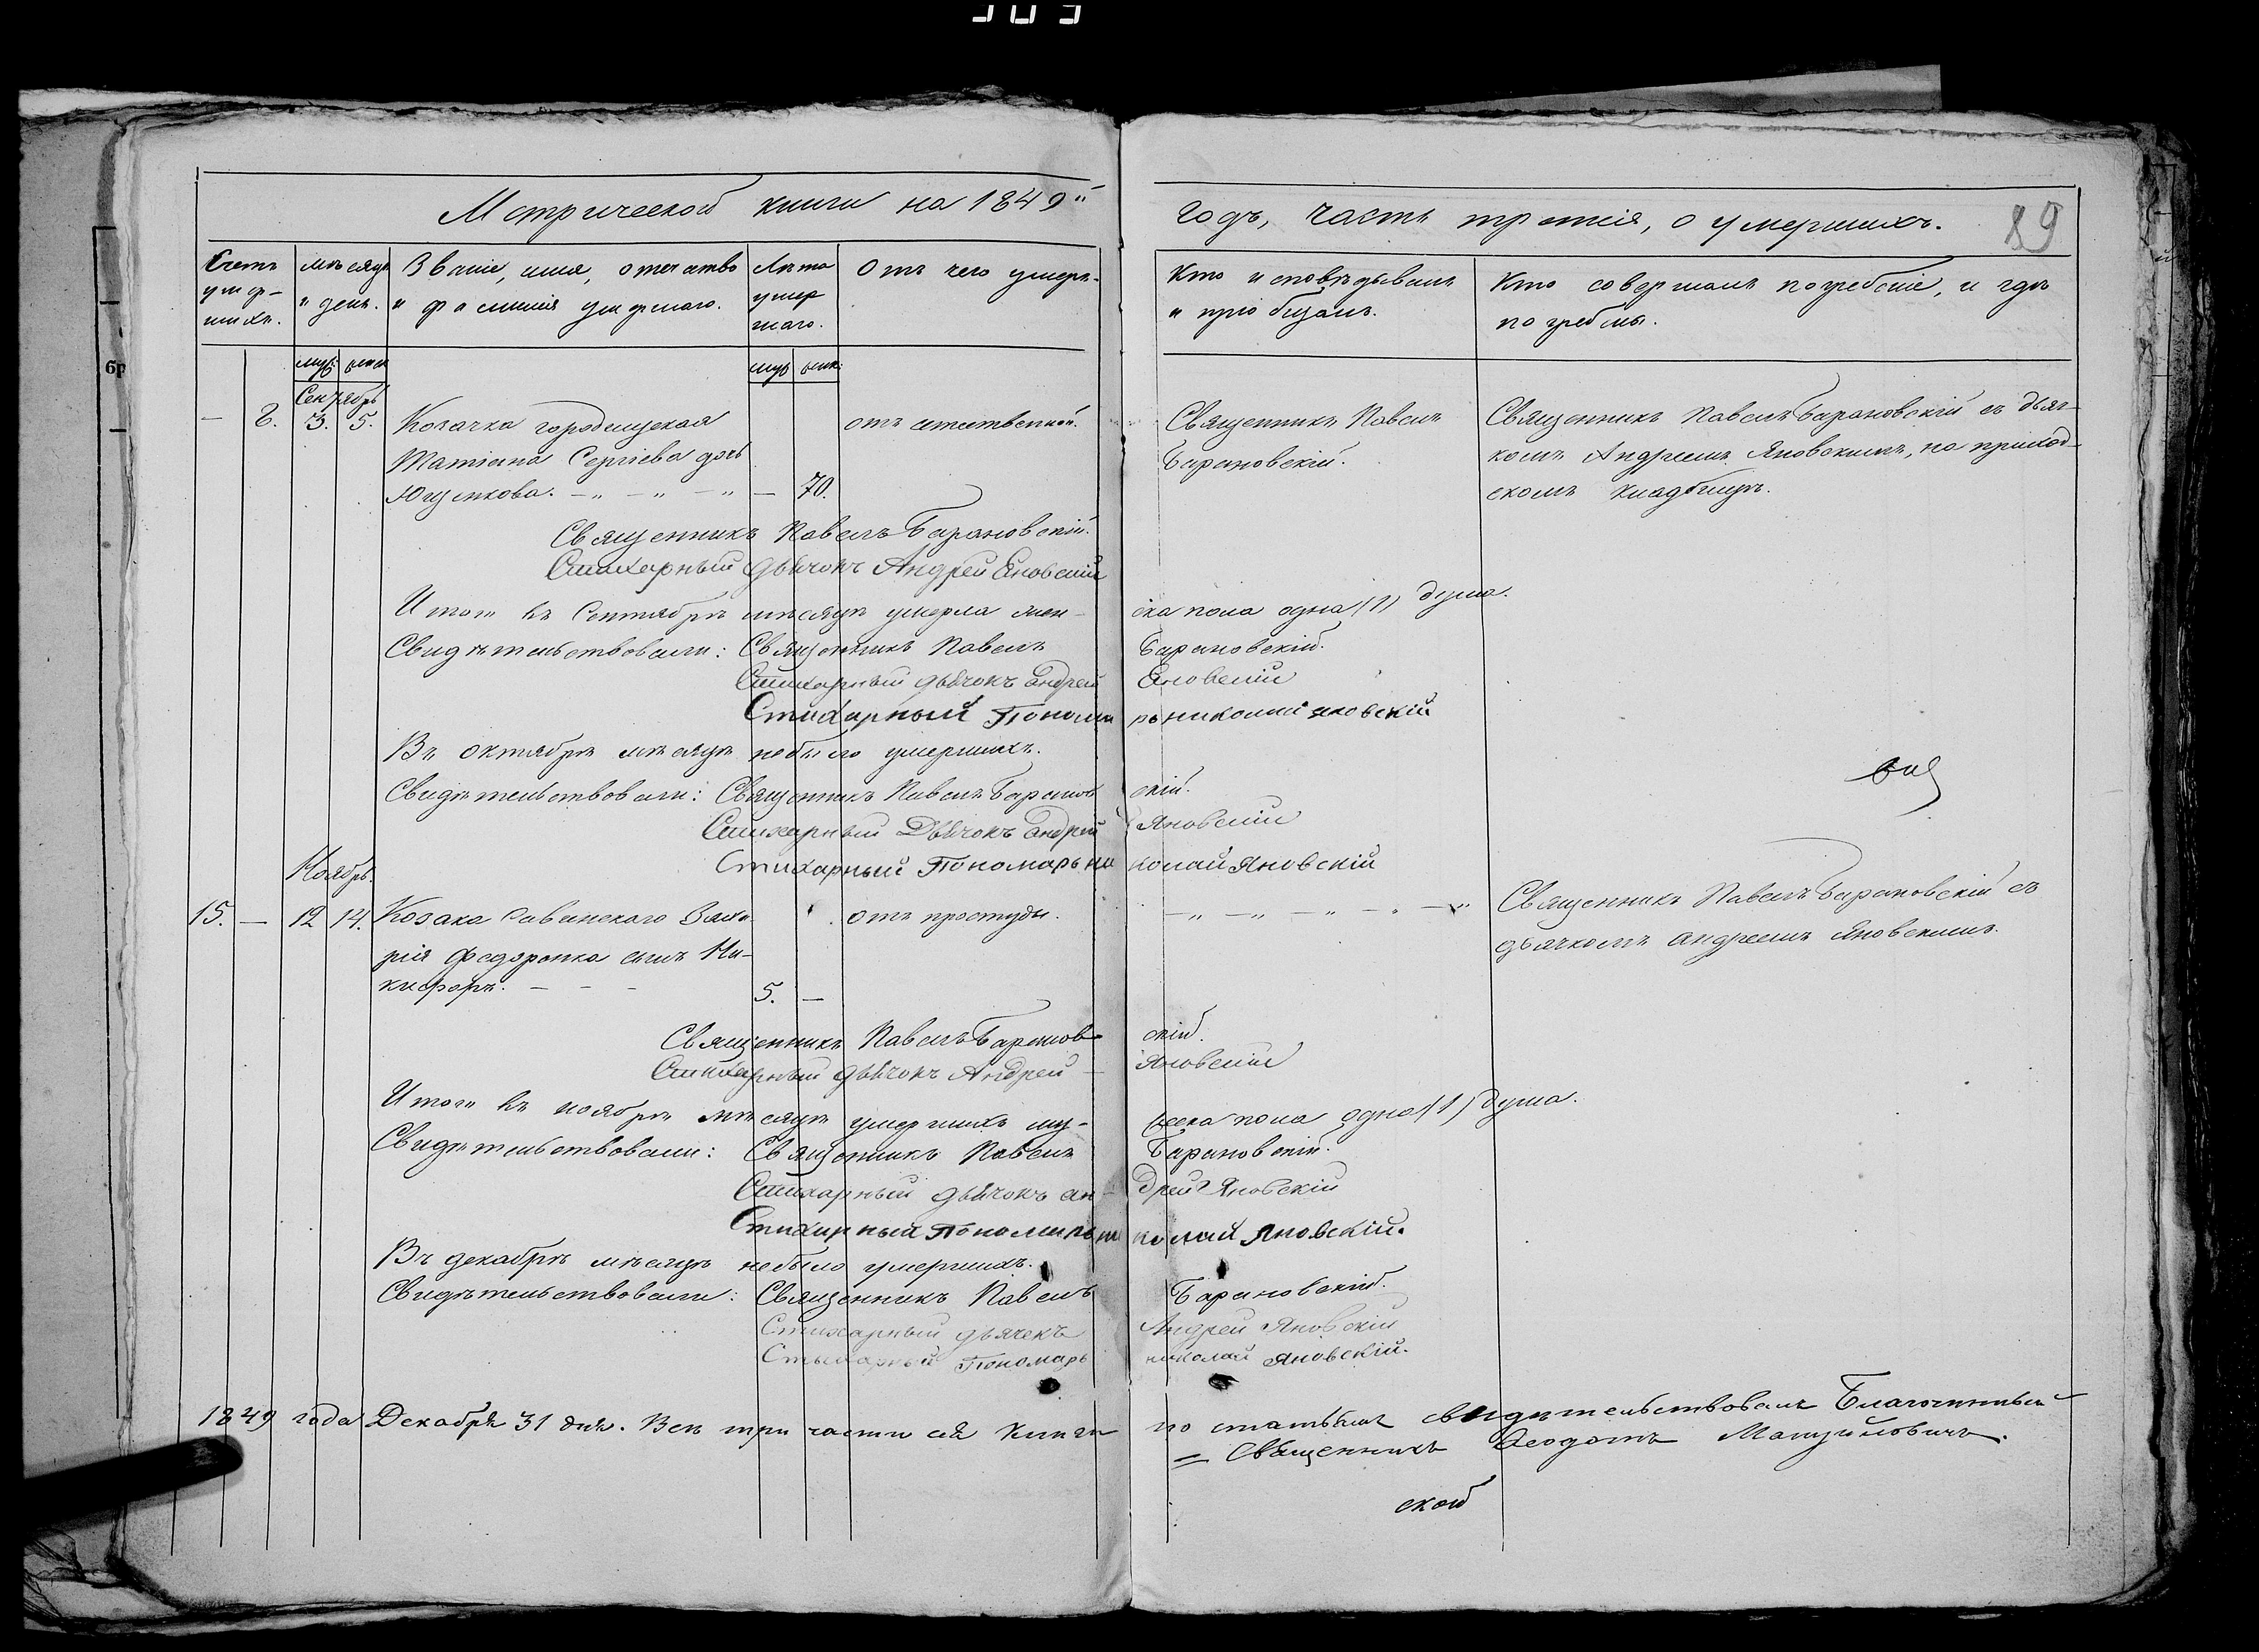 Метрической книги на 1849й
годъ, часть третія, о умершихъ.
89
Счетъ умер-
шихъ.
Мѣсяцъ
и день.
Званіе, имя, отечество
и фамилія умершаго.
Лѣта
умер
шаго.
Отъ чего умеръ.
Кто исповѣдывалъ
и пріобщалъ.
Кто совершалъ погребеніе, и гдѣ
погребены.
муж: женс
муж женс:
Сентябрь
— 8. 3. 5. Козачка городищская отъ естественной.
Татіана Сергіева дочь
Ющенкова. — 70.
Священникъ Павелъ
Барановскій.
Священникъ Павелъ Барановскій съ дьяч-
комъ Андреемъ Яновскимъ, на приход-
скомъ кладбищѣ.
Священникъ Павелъ Барановскій.
Стихарный дьячокъ Андрей Яновскій
Итого въ Сентябрѣ мѣсяцѣ умерла жен-
ска пола одна (1) душа.
Свидѣтельствовали: Священникъ Павелъ Барановскій.
Стихарный дьячокъ Андрей Яновскій
Стихарный Пономарь Николай Яновскій
Въ октябрѣ мѣсяцѣ небыло умершихъ.
Свидѣтельствовали: Священникъ Павелъ Барановскій.
Стихарный Дьячокъ Андрей Яновскій
Стихарный Пономарь Николай Яновскій
Ноябрь.
15. — 12 14. Козака Савинскаго отъ простуды.
рія Федоронка сынъ Ни-
кифоръ. — — — 5. —
Священникъ Павелъ Барановскій съ
дьячкомъ Андреемъ Яновскимъ.
Священникъ Павелъ Барановскій.
Стихарный дьячокъ Андрей Яновскій
Итого въ ноябрѣ мѣсяцѣ умершихъ му-
жеска пола одна (1) душа.
Свидѣтельствовали: Священникъ Павелъ Барановскій.
Стихарный дьячокъ Андрей Яновскій
Стихарный Пономарь Николай Яновскій.
Въ декабрѣ мѣсяцѣ небыло умершихъ.
Свидѣтельствовали: Священникъ Павелъ Барановскій.
Стихарный дьячекъ Андрей Яновскій
Стыхарный Пономарь Николай Яновскій.
1849 года Декабря 31 дня. Всѣ три части сея Книги по статьямъ свидѣтельствовалъ Благочинный
= Священникъ Феодотъ Мануйловичъ.
ской